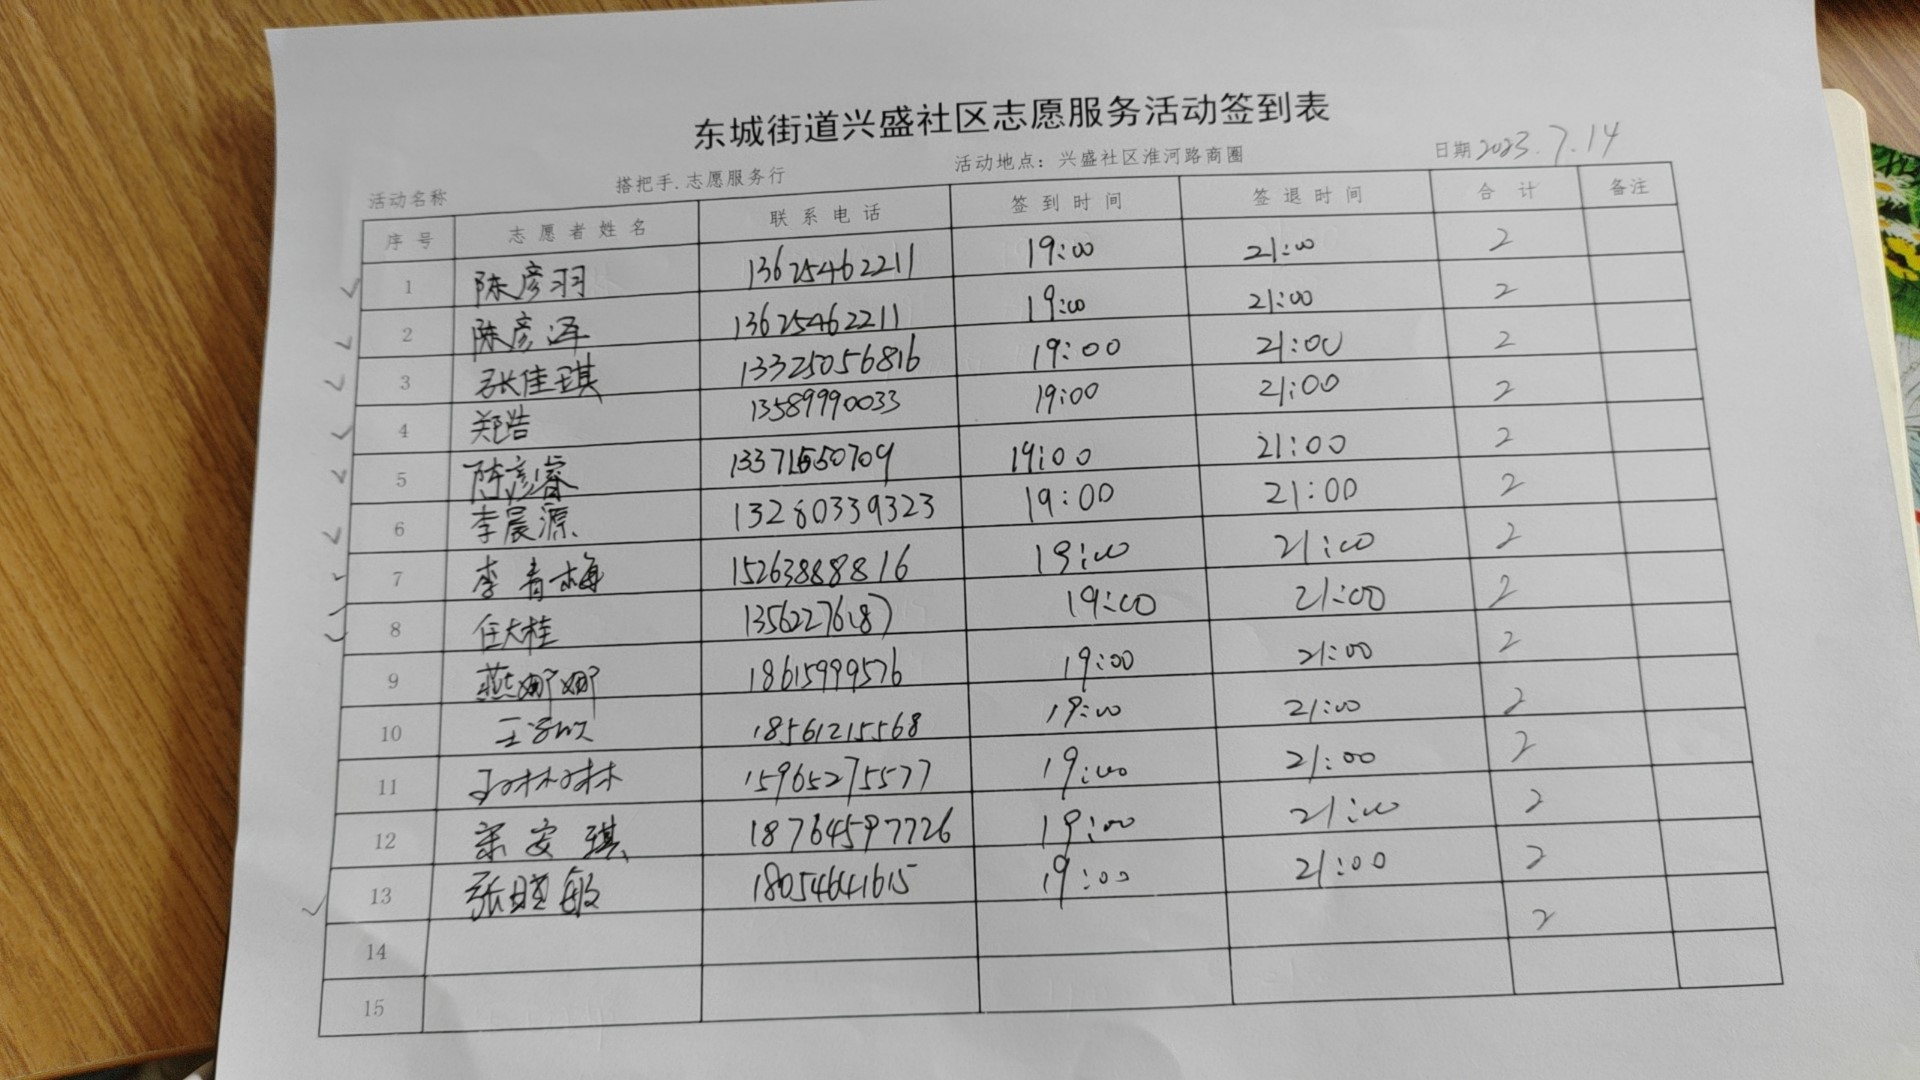 东城街道兴盛社区志愿服务活动签到表
活动名称 搭把手.志愿服务行 活动地点：兴盛社区淮河路商圈 日期 2023.7.14
序号 志愿者姓名 联系电话 签到时间 签退时间 合计 备注
1 陈彦羽 13625462211 19:00 21:00 2
2 陈彦泽 13625462211 19:00 21:00 2
3 张佳琪 13325056816 19:00 21:00 2
4 郑浩 13589990033 19:00 21:00 2
5 陈彦睿 13371550709 19:00 21:00 2
6 李晨源 13280339323 19:00 21:00 2
7 李青梅 15263888816 19:00 21:00 2
8 任大桂 13562276187 19:00 21:00 2
9 燕娜娜 18615999576 19:00 21:00 2
10 18561215568 19:00 21:00 2
11 15965275577 19:00 21:00 2
12 宋安琪 18764597726 19:00 21:00 2
13 张敏 18054641615 19:00 21:00 2
14 2
15